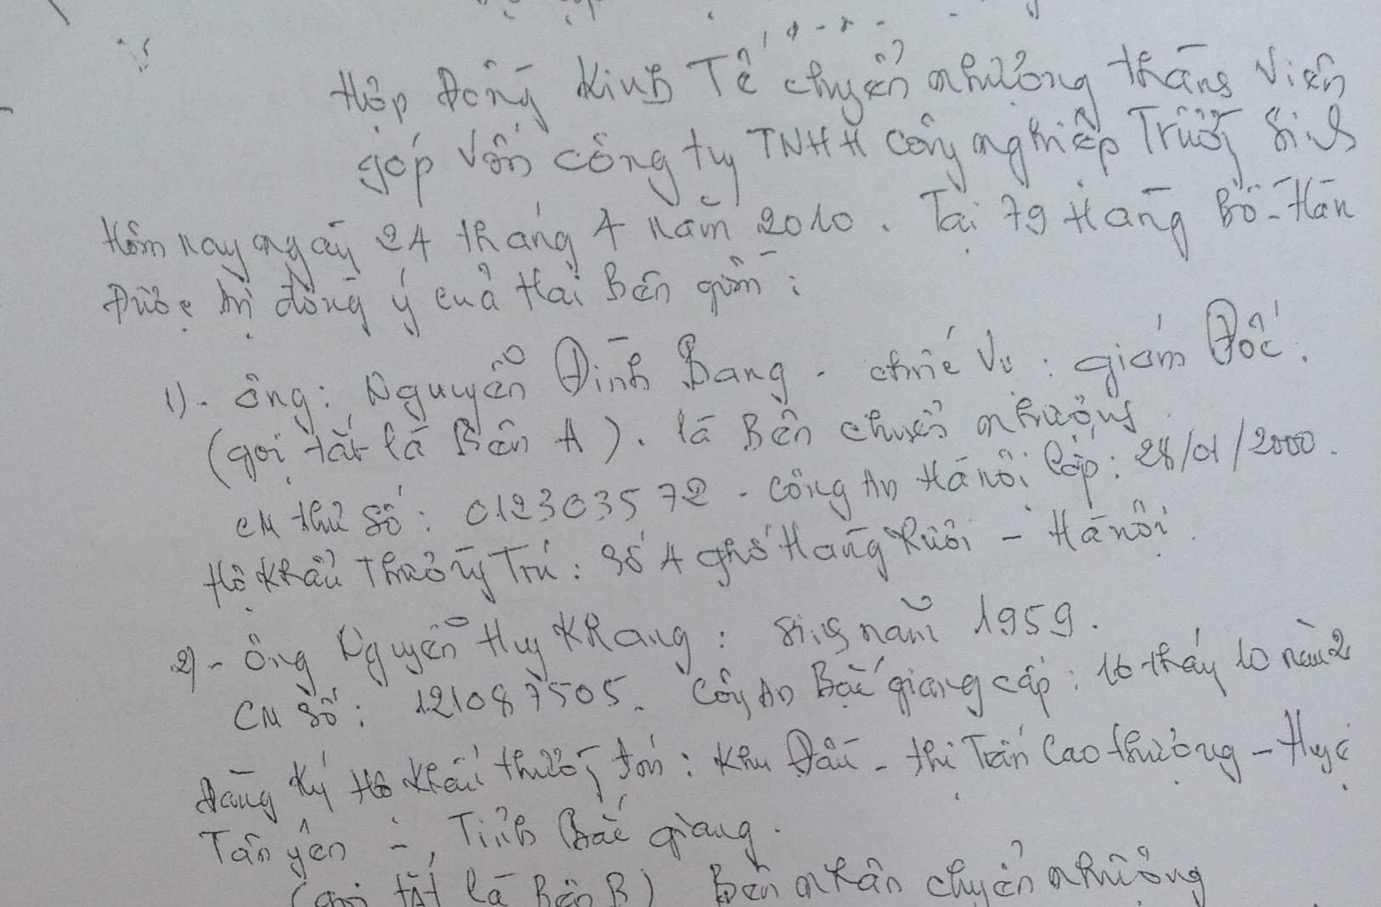 Hợp Đồng Kinh Tế chuyển nhượng thành viên
góp vốn công ty TNHH công nghiệp Trường Sinh
Hôm nay ngày 24 tháng 4 năm 2010. Tại 79 Hàng Bồ - Hàn
Được sự đồng ý của Hai Bên gồm:
1) - ông: Nguyễn Đình Bang - chức vụ: giám Đốc.
(gọi tắt là Bên A). là Bên chuyển nhượng
CM thư số: 012303572 - công An Hà nội cấp: 28/01/2000.
Hộ khẩu Thường Trú: số 4 phố Hàng Rươi - Hà nội.
2) - ông Nguyễn Huy Khang: sinh năm 1959.
CM số: 121087505. Công An Bắc giang cấp: 16 tháng 10 năm 2
Đăng ký Hộ khẩu thường trú: khu Đầu - thị Trấn Cao thượng - Huyệ
Tân yên - Tỉnh Bắc giang.
(gọi tắt là Bên B) Bên nhận chuyển nhượng